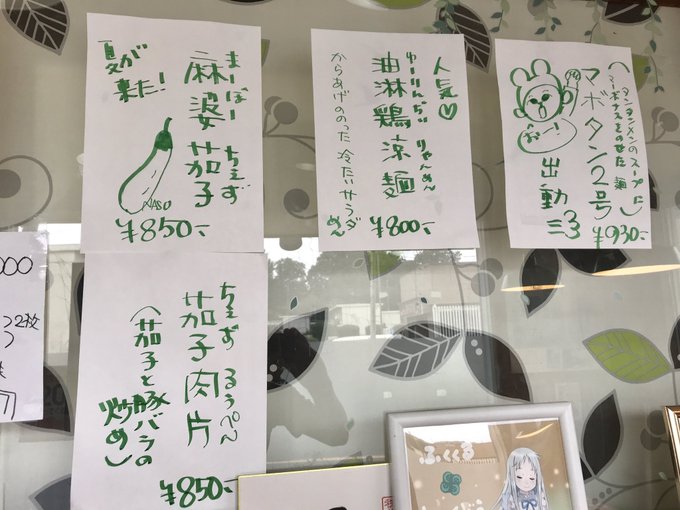 夏が
来た!
まーぼー ちぇず
麻婆茄子
NASU
¥850-
人気♡
ゆーりんぢー りゃんめん
油淋鶏涼麺
からあげののった 冷たいサラダ
めん
¥800-
(タンタンメンのスープに
マーボナスをのせた 麺)
マボタン2号
おー!
出動
¥930-
ちぇず るぅぺん
茄子肉片
(茄子と豚バラの
炒め)
¥850-
000
2枚
ふくくる